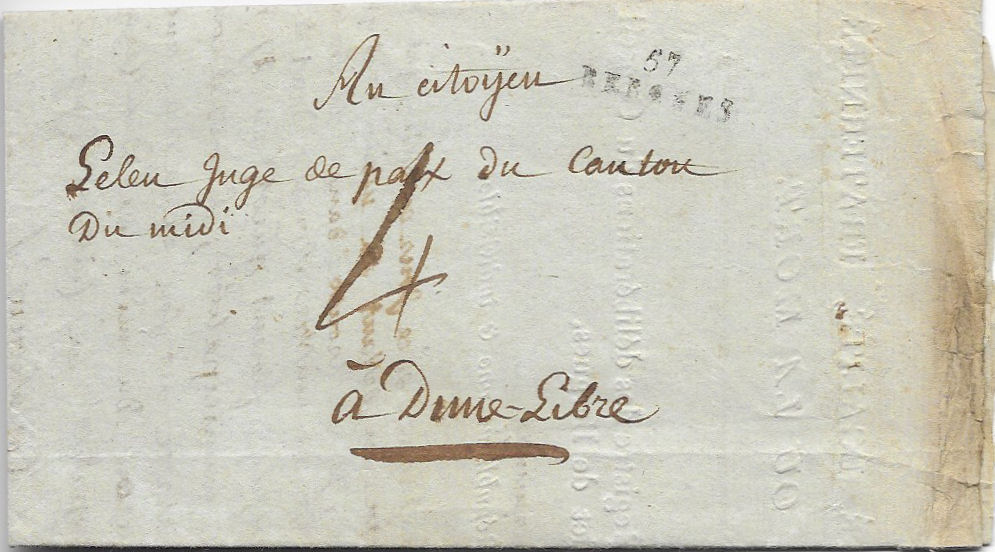 Au citoÿen
57
BERGUES
Leleu Juge de paix du Canton
Du midi
4
à Dune-Libre